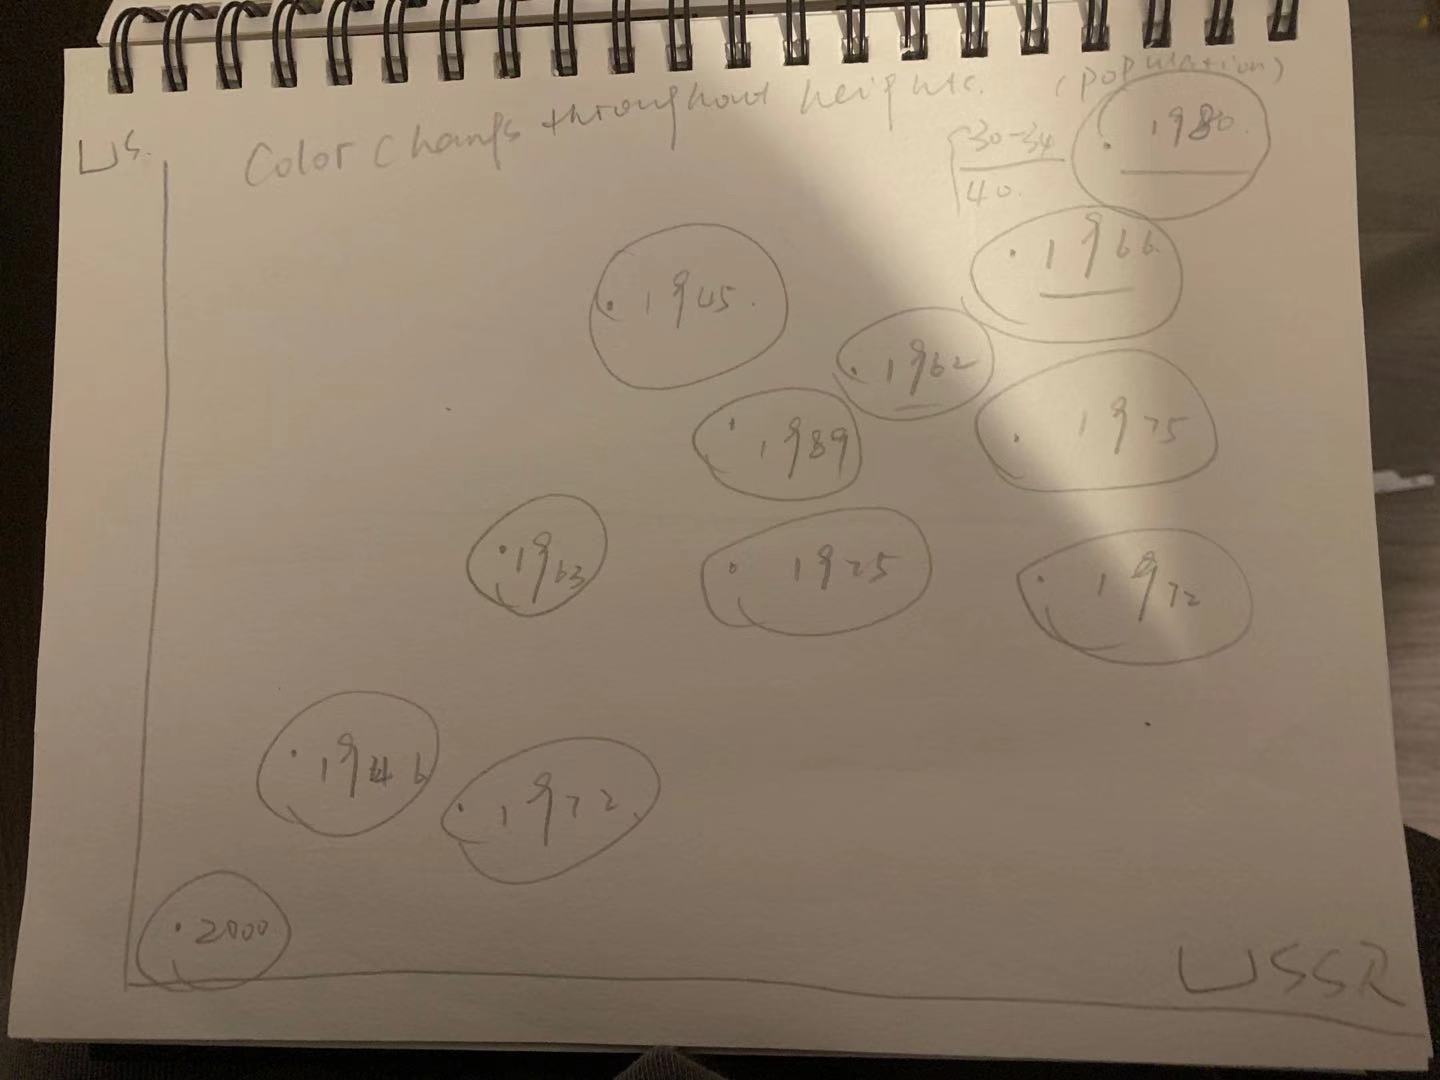 US.
Color Changs throughout heights. (population)
30-34
40.
1980.
1966
1945.
1962
1989
1975
1963
1975
1972
1946
1972
2000
USSR